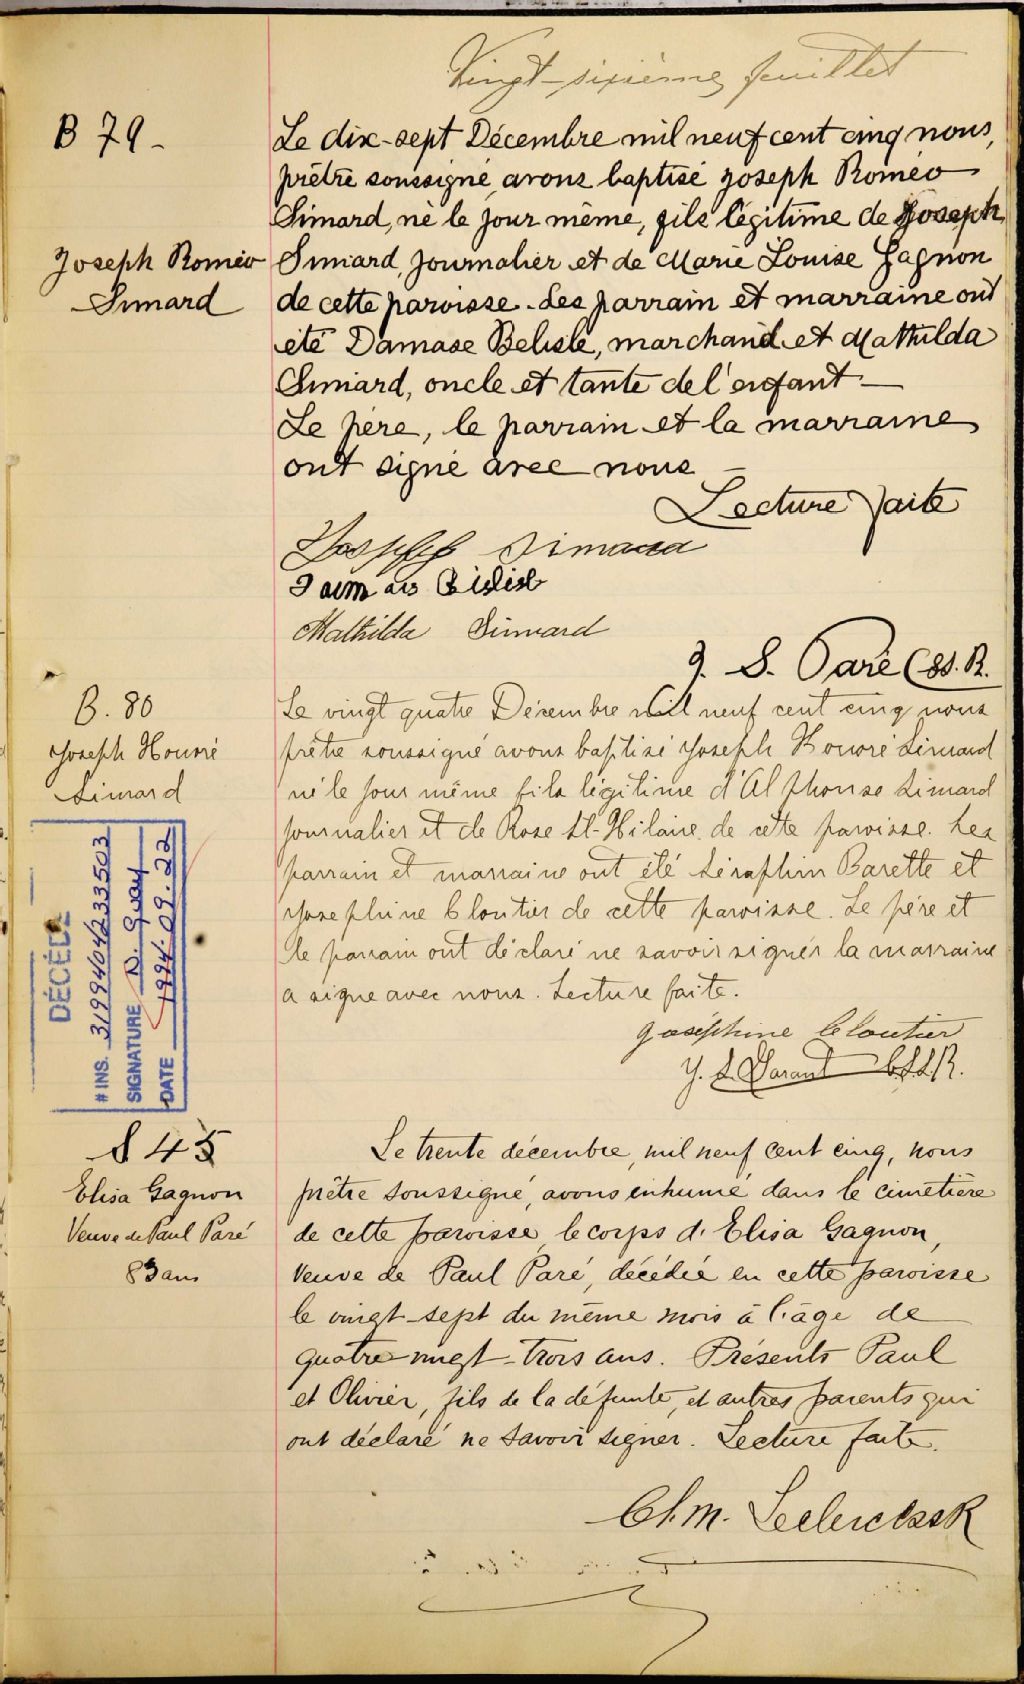 Vingt-sixième feuillet
B 79-
Joseph Roméo
Simard
Le dix-sept Décembre mil neuf cent cinq nous,
prêtre soussigné avons baptisé Joseph Roméo
Simard, né le jour même, fils légitime de Joseph
Simard, journalier et de Marie Louise Gagnon
de cette paroisse. Les parrain et marraine ont
été Damase Belisle, marchand et Mathilda
Simard, oncle et tante de l'enfant —
Le père, le parrain et la marraine
ont signé avec nous —
Lecture faite
Joseph Simard
Mathilda Simard
J. S. Paré C.SS.R.
B. 80
Joseph Honoré
Simard
Le vingt quatre Décembre mil neuf cent cinq nous
prêtre soussigné avons baptisé Joseph Honoré Simard
né le jour même fils légitime d'Alphonse Simard
journalier et de Rose St-Hilaire de cette paroisse. Les
parrain et marraine ont été Séraphin Barette et
Josephine Cloutier de cette paroisse. Le père et
le parrain ont déclaré ne savoir signer la marraine
a signé avec nous. Lecture faite.
Joséphine Cloutier
C.S.S.R.
DÉCÉDÉ
# INS. 3199404233503
SIGNATURE D. Guay
DATE 1994.09.22
S 45
Elisa Gagnon
Veuve de Paul Paré
83 ans
Le trente décembre, mil neuf cent cinq, nous
prêtre soussigné, avons inhumé dans le cimetière
de cette paroisse, le corps d'Elisa Gagnon,
veuve de Paul Paré, décédée en cette paroisse
le vingt-sept du même mois à l'âge de
quatre-vingt-trois ans. Présents Paul
et Olivier, fils de la défunte, et autres parents qui
ont déclaré ne savoir signer. Lecture faite.
Ch. M. Leclerc CSSR